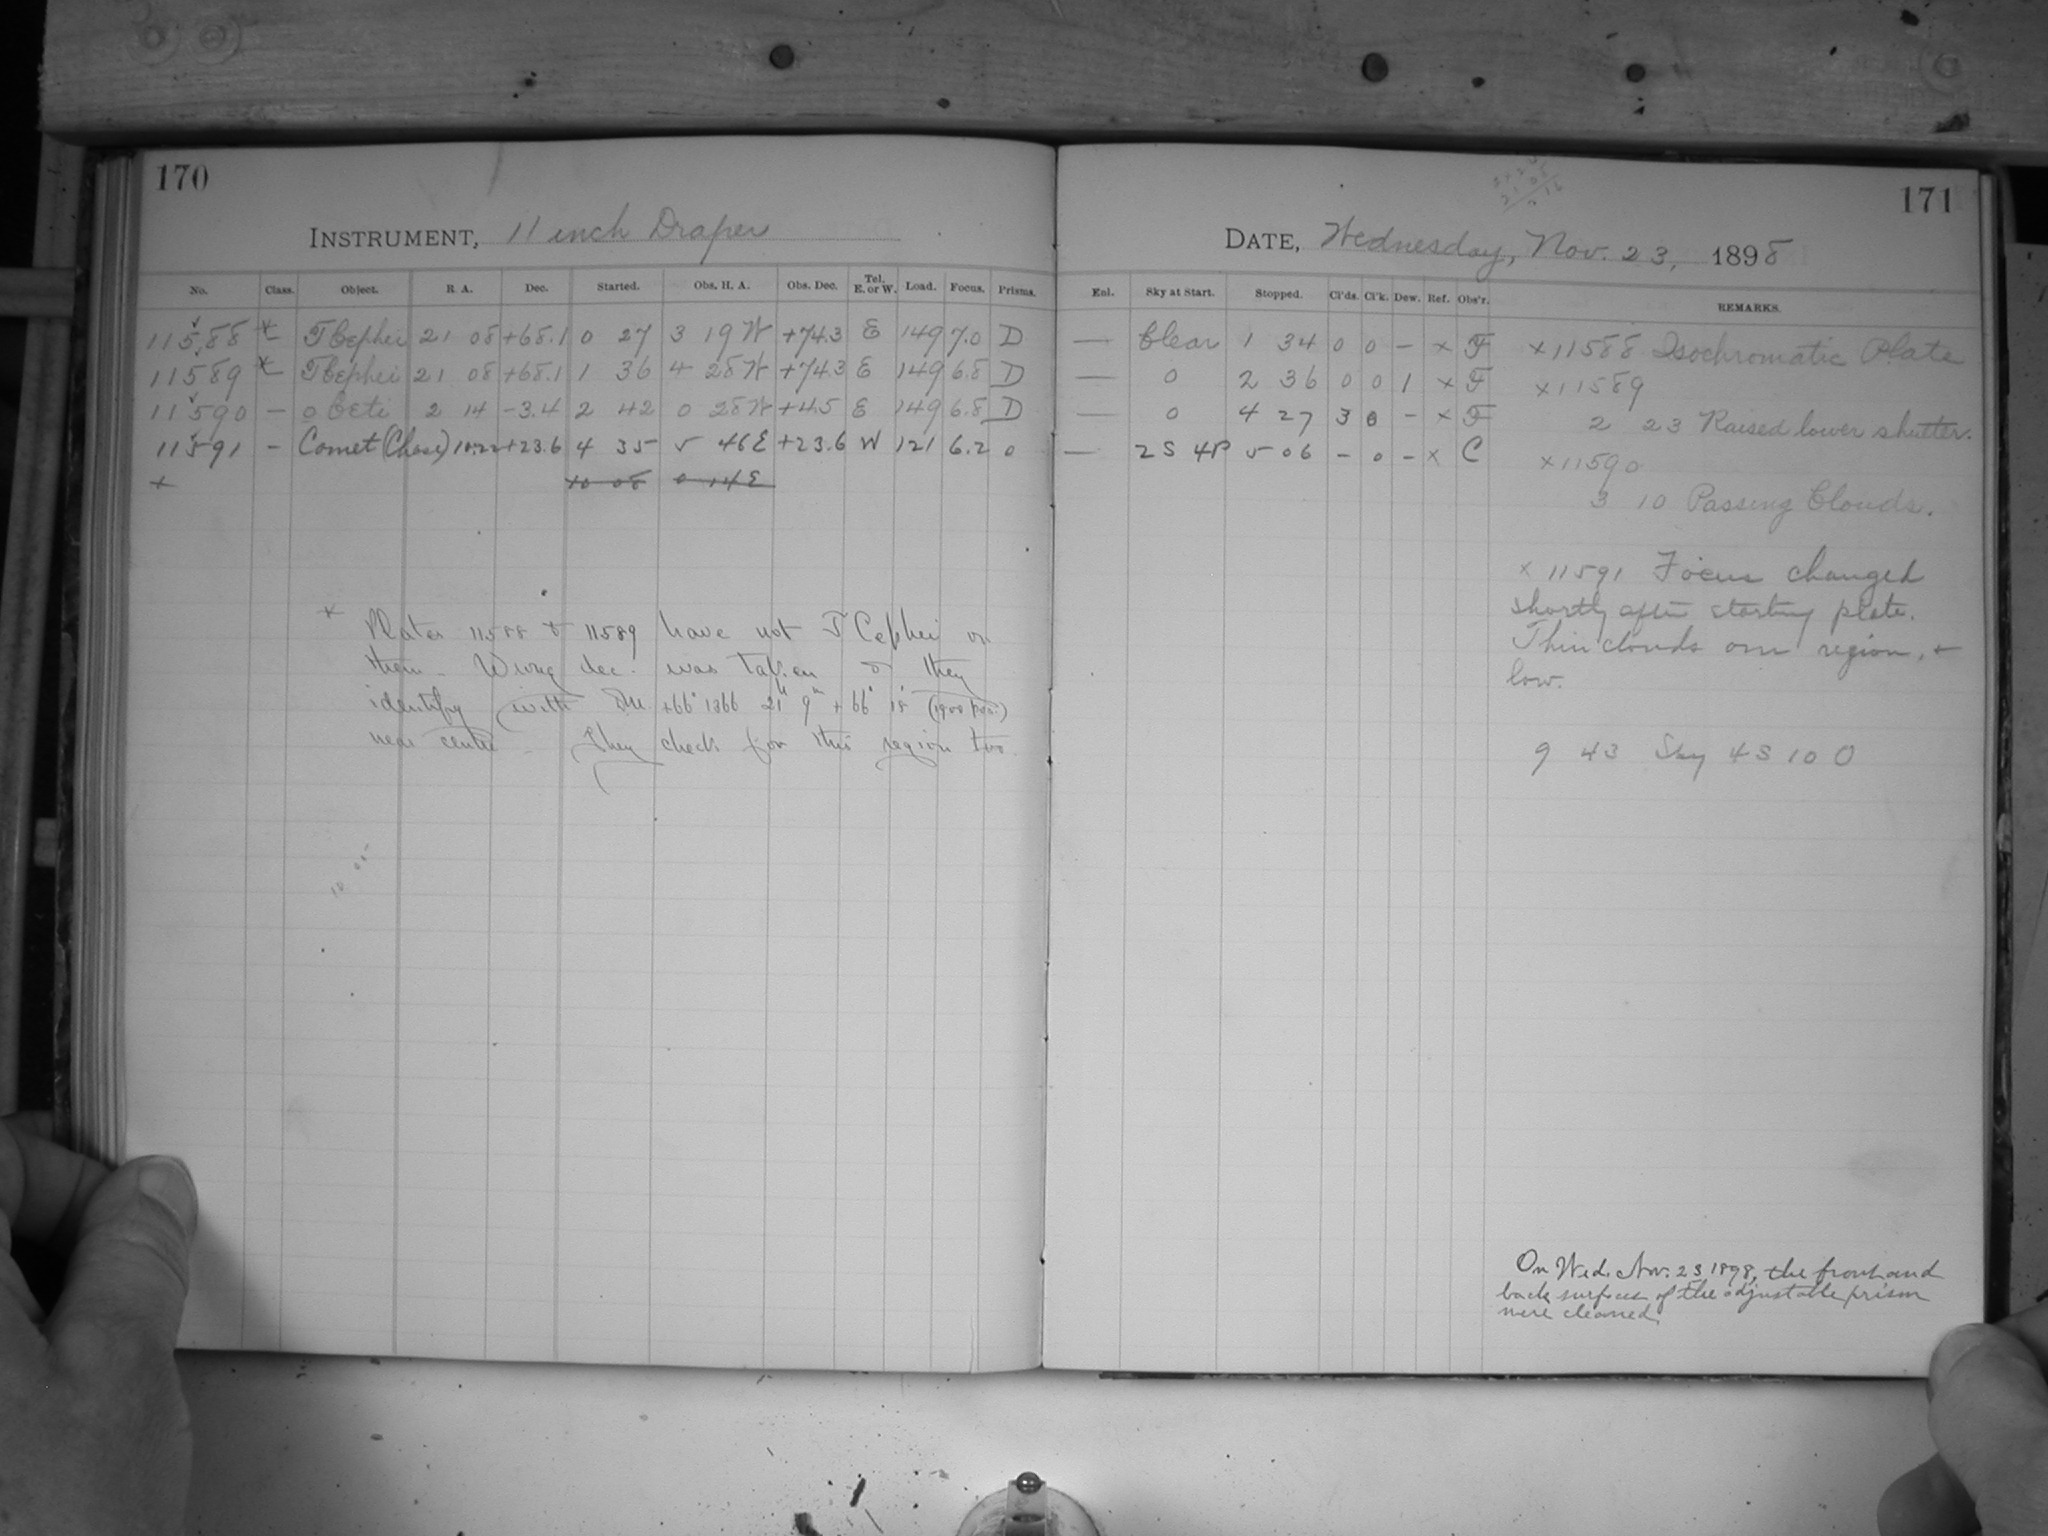 170
INSTRUMENT, 11 inch Draper
No. Class. Object. R. A. Dec. Started. Obs. H. A. Obs. Dec. Tel. E. or W. Load. Focus. Prisms.
11588 * T Cephei 21 08 +68.1 0 27 3 19 W +74.3 E 149 7.0 D
11589 * T Cephei 21 08 +68.1 1 36 4 28 W +74.3 E 149 6.8 D
11590 - o Ceti 2 14 -3.4 2 42 0 28 W +4.5 E 149 6.8 D
11591 - Comet (Chase) 10.22 +23.6 4 35 5 46 E +23.6 W 121 6.2 0
10 08 0 14 E
* Plates 11588 & 11589 have not T Cephei on
them. Wrong dec. was taken & they
identify with DM. +66° 1366 21h 9m +66° 18' (1900 pos.)
near centre. They check for this region two
171
DATE, Wednesday, Nov. 23, 1898
Enl. Sky at Start. Stopped. Cl'ds. Cl'k. Dew. Ref. Obs'r. REMARKS.
— Clear 1 34 0 0 - x F
— 0 2 36 0 0 1 x F
— 0 4 27 3 0 - x F
— 2S 4P 5 06 - 0 - x C
x 11588 Isochromatic Plate
x 11589
2 23 Raised lower shutter.
x 11590
3 10 Passing Clouds.
x 11591 Focus changed
shortly after starting plate.
Thin clouds over region, +
low.
9 43 Sky 4 S 10 0
On Wed. Nov. 23 1898, the front and
back surfaces of the adjustable prism
were cleaned.